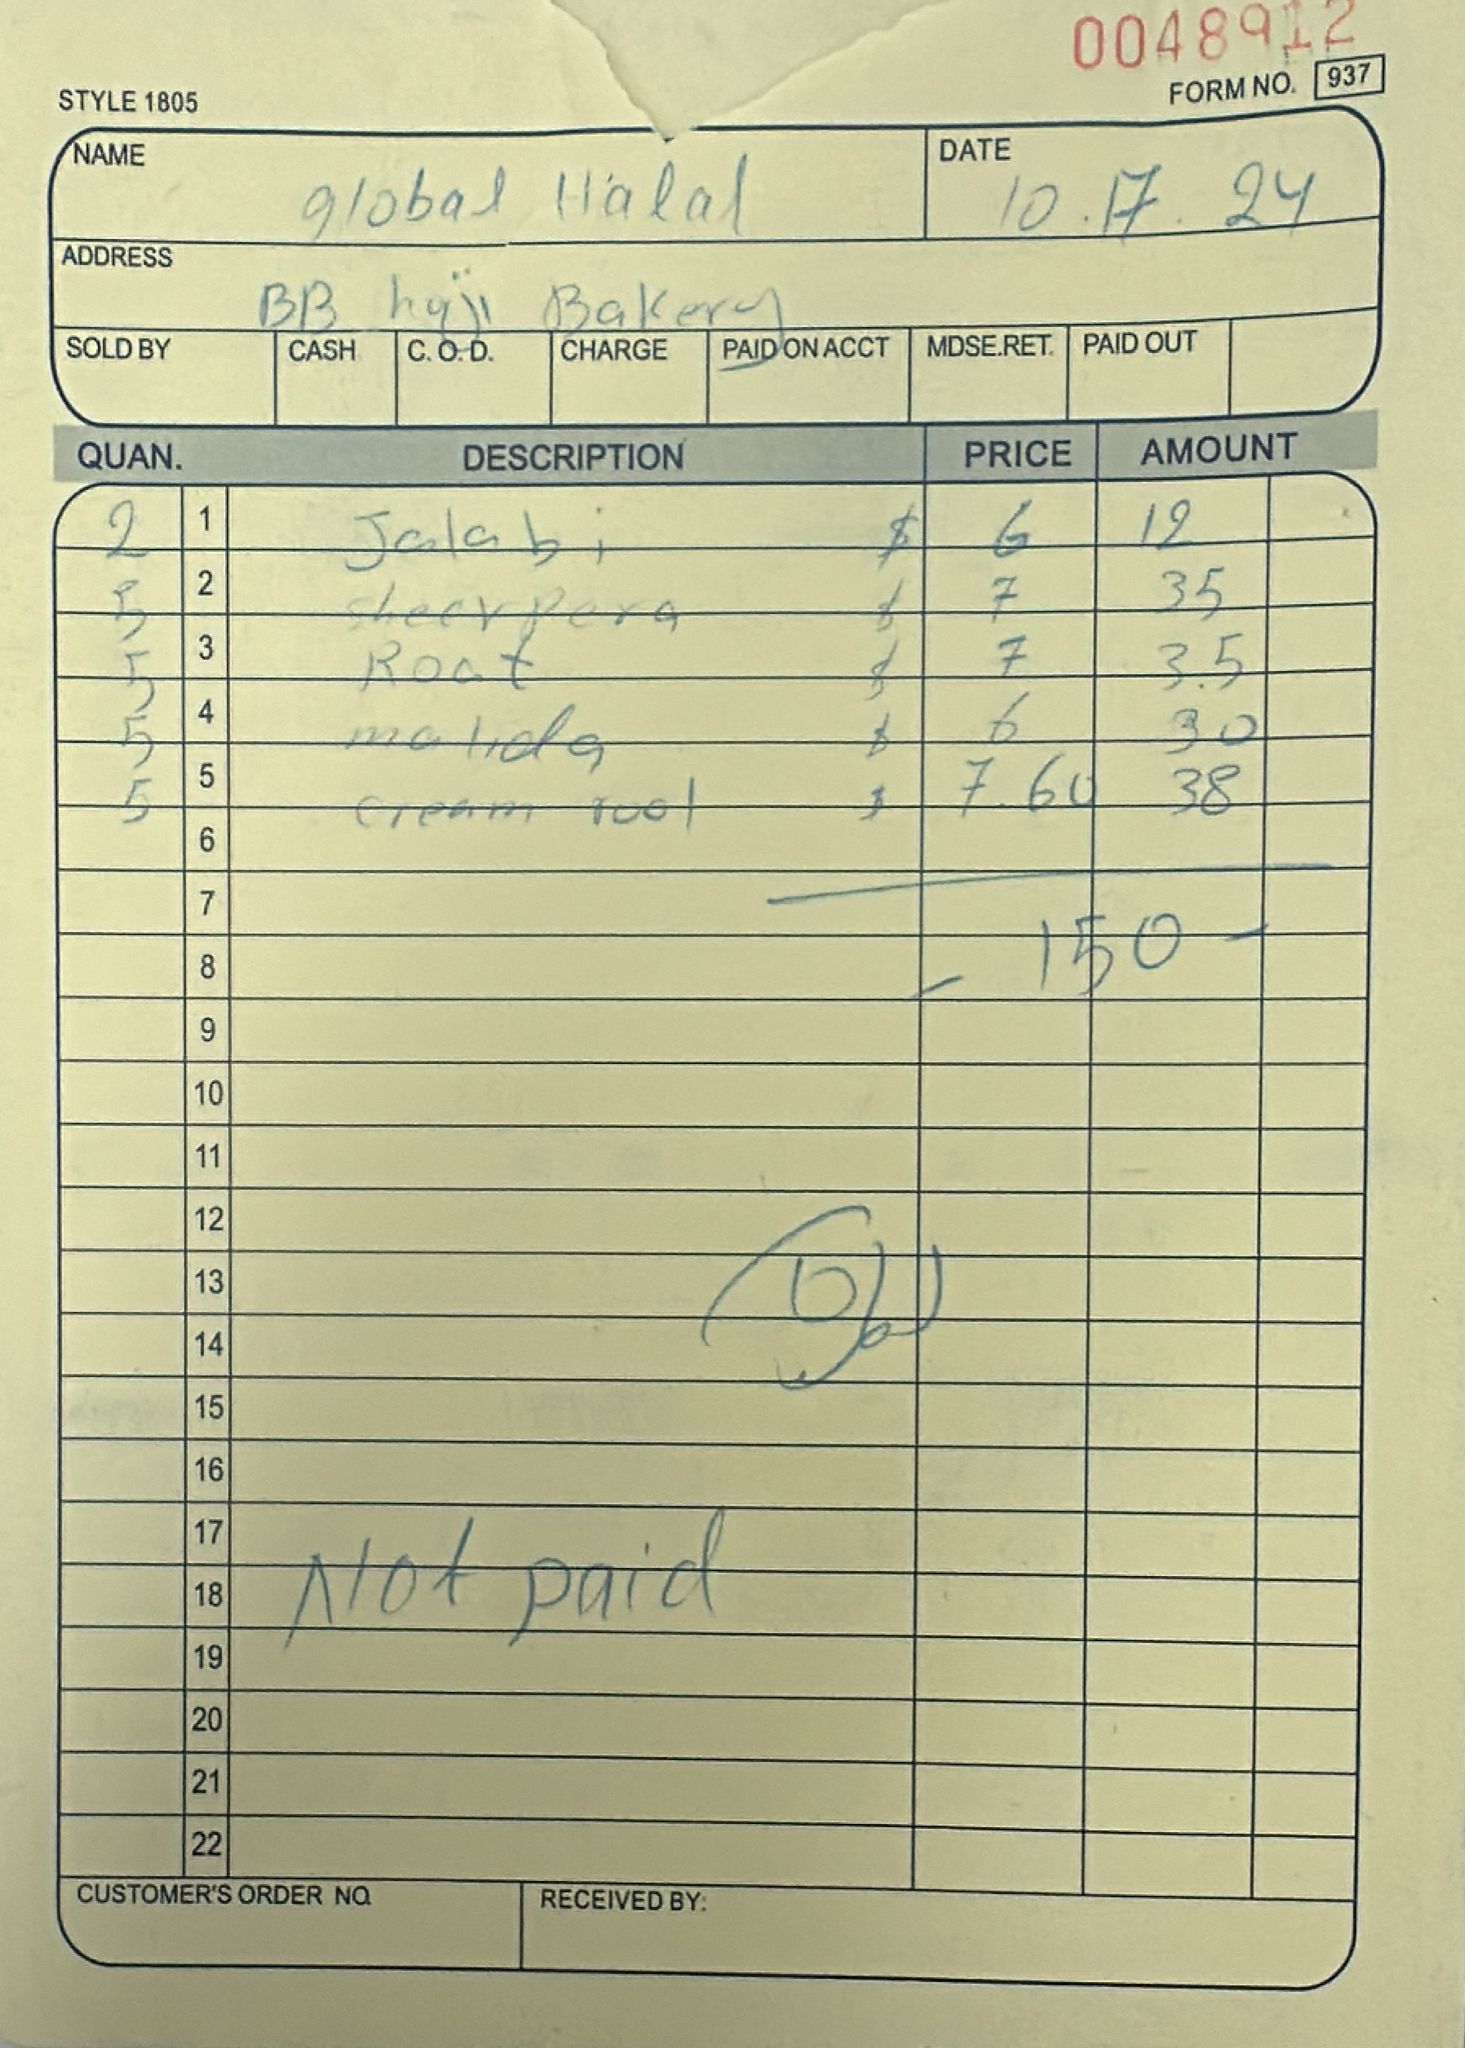 0048912
STYLE 1805 FORM NO. 937
NAME global Halal DATE 10.17.24
ADDRESS BB haji Bakery
SOLD BY CASH C. O. D. CHARGE PAID ON ACCT MDSE. RET. PAID OUT
QUAN. DESCRIPTION PRICE AMOUNT
2 1 Jalabi $ 6 12
5 2 sheerpera $ 7 35
5 3 Roat $ 7 3.5
5 4 malida $ 6 30
5 5 cream rool $ 7.60 38
6
7
8 - 150 -
9
10
11
12
13
14
15
16
17
18 Not paid
19
20
21
22
CUSTOMER'S ORDER NO. RECEIVED BY: